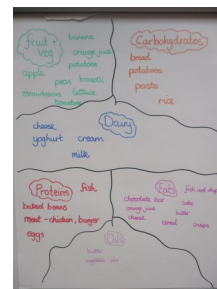 fruit + veg
banana
orange juice
potatoes
apple
peas
broccoli
strawberries
lettuce
tomatoes
Carbohydrates
bread
potatoes
pasta
rice
Dairy
cheese
yoghurt
cream
milk
Proteins
fish
baked beans
meat - chicken, burger
eggs
Fats
fish and chips
chocolate bar
cake
orange juice
butter
cheese
cereal
crisps
Oils
butter
vegetable oil